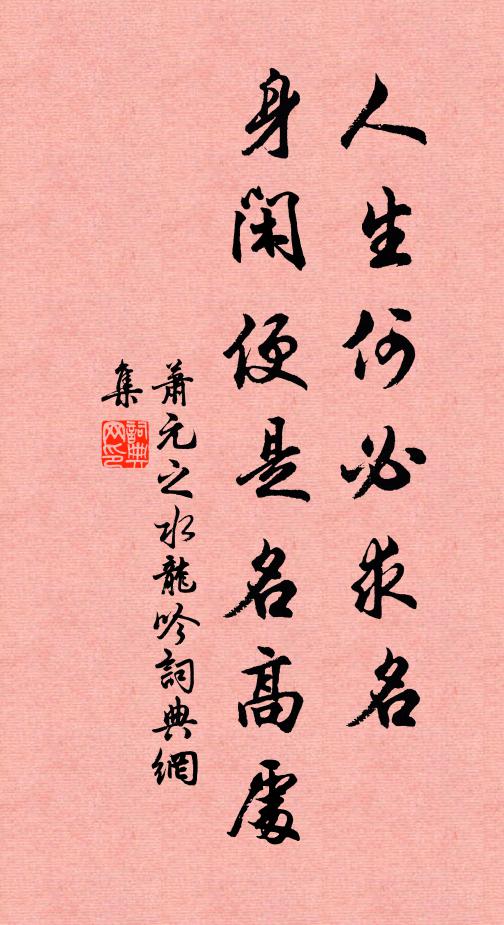 人生何必求名
身閑便是名高處
蕭元之水龍吟詞典網
集
詞典
网印